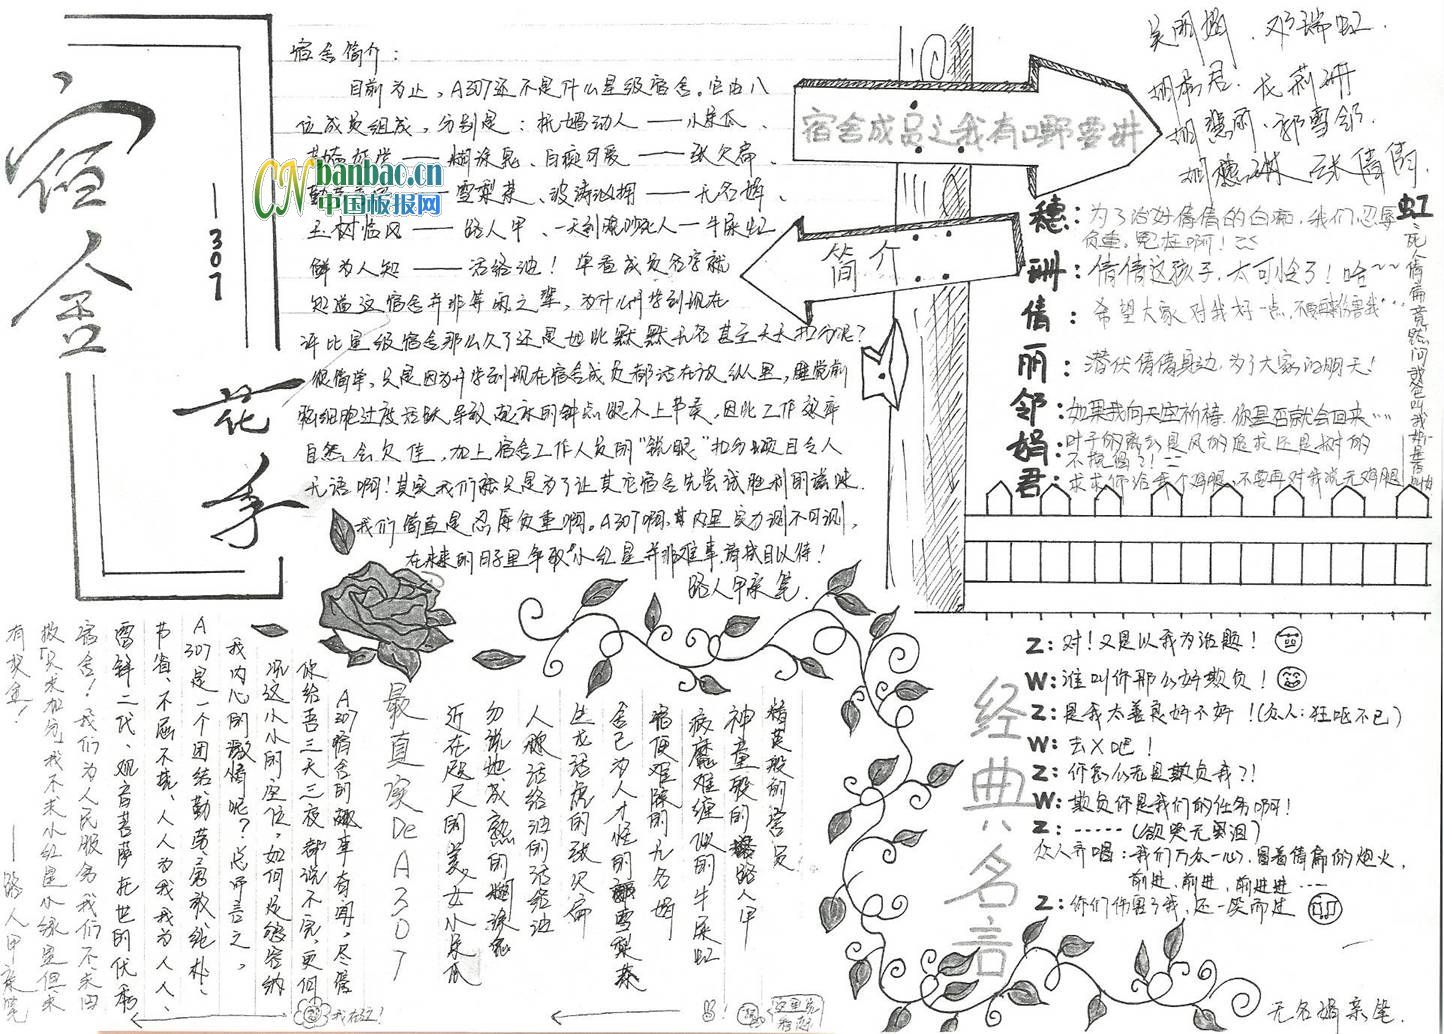 宿舍
—307
花手
宿舍简介：
目前为止，A307还不是什么星级宿舍。它由八
位成员组成，分别是：
白痴可爱——张欠扁、
CN banbao.cn
中国板报网
——雪梨荪、波涛汹拥——无名娟、
玉树临风——路人甲、
鲜为人知——活络油！单看成员名字就
知道这宿舍并非等闲之辈，为什么开学到现在
评比星级宿舍那么久了还是如此默默无名甚至天天扣分呢？
很简单，只是因为开学到现在宿舍成员都活在放纵里，睡觉前
脑细胞过度活跃导致起床的钟点跟不上节奏，因此工作效率
自然会欠佳，加上宿舍工作人员的"锐眼"扣分项目令人
无语啊！其实我们就只是为了让其它宿舍先尝试胜利的滋味.
我们简直是忍辱负重啊。A307啊，其内里实力深不可测，
在未来的日子里争取"小红星"并非难事，请拭目以待！
路人甲亲笔.
宿舍成员之我有嘢要讲
简介
吴明娟、邓瑞虹.
穗：为了治好倩倩的白痴，我们忍辱
负重，冤枉啊！
珊：倩倩这孩子，太可怪了！哈~~
倩：希望大家对我好一点，
丽：潜伏倩倩身边，为了大家的明天！
邻：如果我向天空祈祷，你是否就会回来……
娟：叶子的离开是风的追求还是树的
不挽留？！
君：求求你给我个鸡腿，不要再对我说无鸡腿
虹：
经典名言
Z：对！又是以我为话题！
W：谁叫你那么好欺负！
Z：是我太善良好不好！(众人：狂呕不已)
W：去X吧！
Z：你怎么老是欺负我？！
W：欺负你是我们的任务啊！
Z：……(欲哭无泪)
众人齐唱：我们万众一心，冒着倩扁的炮火，
前进，前进，前进进……
Z：你们伤害了我，还一笑而过
无名娟亲笔.
精英般的宿员
神童般的路人甲
病魔难缠似的牛屎虹
宿便难除的无名娟
舍己为人才怪的雪梨荪
生龙活虎的张欠扁
人脉活络油的活络油
勿说她成熟的糊涂
近在咫尺的美女小呆瓜
最真实De A307
A307宿舍的趣事有闻，尽管
你给吾三天三夜都说不完，更何
况这小小的空位，如何足够容纳
我内心的激情呢？总而言之，
A307是一个团结、勤劳、勇敢、纯朴、
节俭、不屈不挠、人人为我我为人人、
雷锋二代、观音菩萨托世的优秀
宿舍！我们为人民服务我们不求回
报「只求加分」我不求小红星小绿星但求
有奖金！
——路人甲亲笔
我在这！